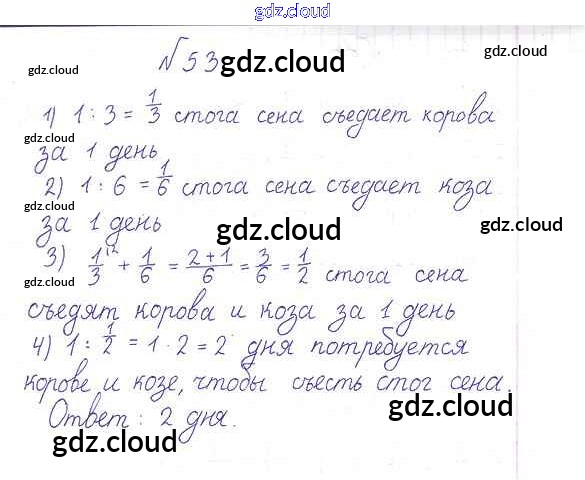 gdz.cloud
№53
gdz.cloud
gdz.cloud
gdz.cloud
1) 1 : 3 = 1/3 стога сена съедает корова
gdz.cloud
за 1 день
2) 1 : 6 = 1/6 стога сена съедает коза
gdz.cloud
за 1 день
gdz.cloud
gdz.cloud
3) 1/3 \2 + 1/6 = 2+1/6 = 3/6 = 1/2 стога сена
gdz.cloud
съедят корова и коза за 1 день
4) 1 : 1/2 = 1 · 2 = 2 дня потребуется
корове и козе, чтобы съесть стог сена.
gdz.cloud
Ответ: 2 дня.
gdz.cloud